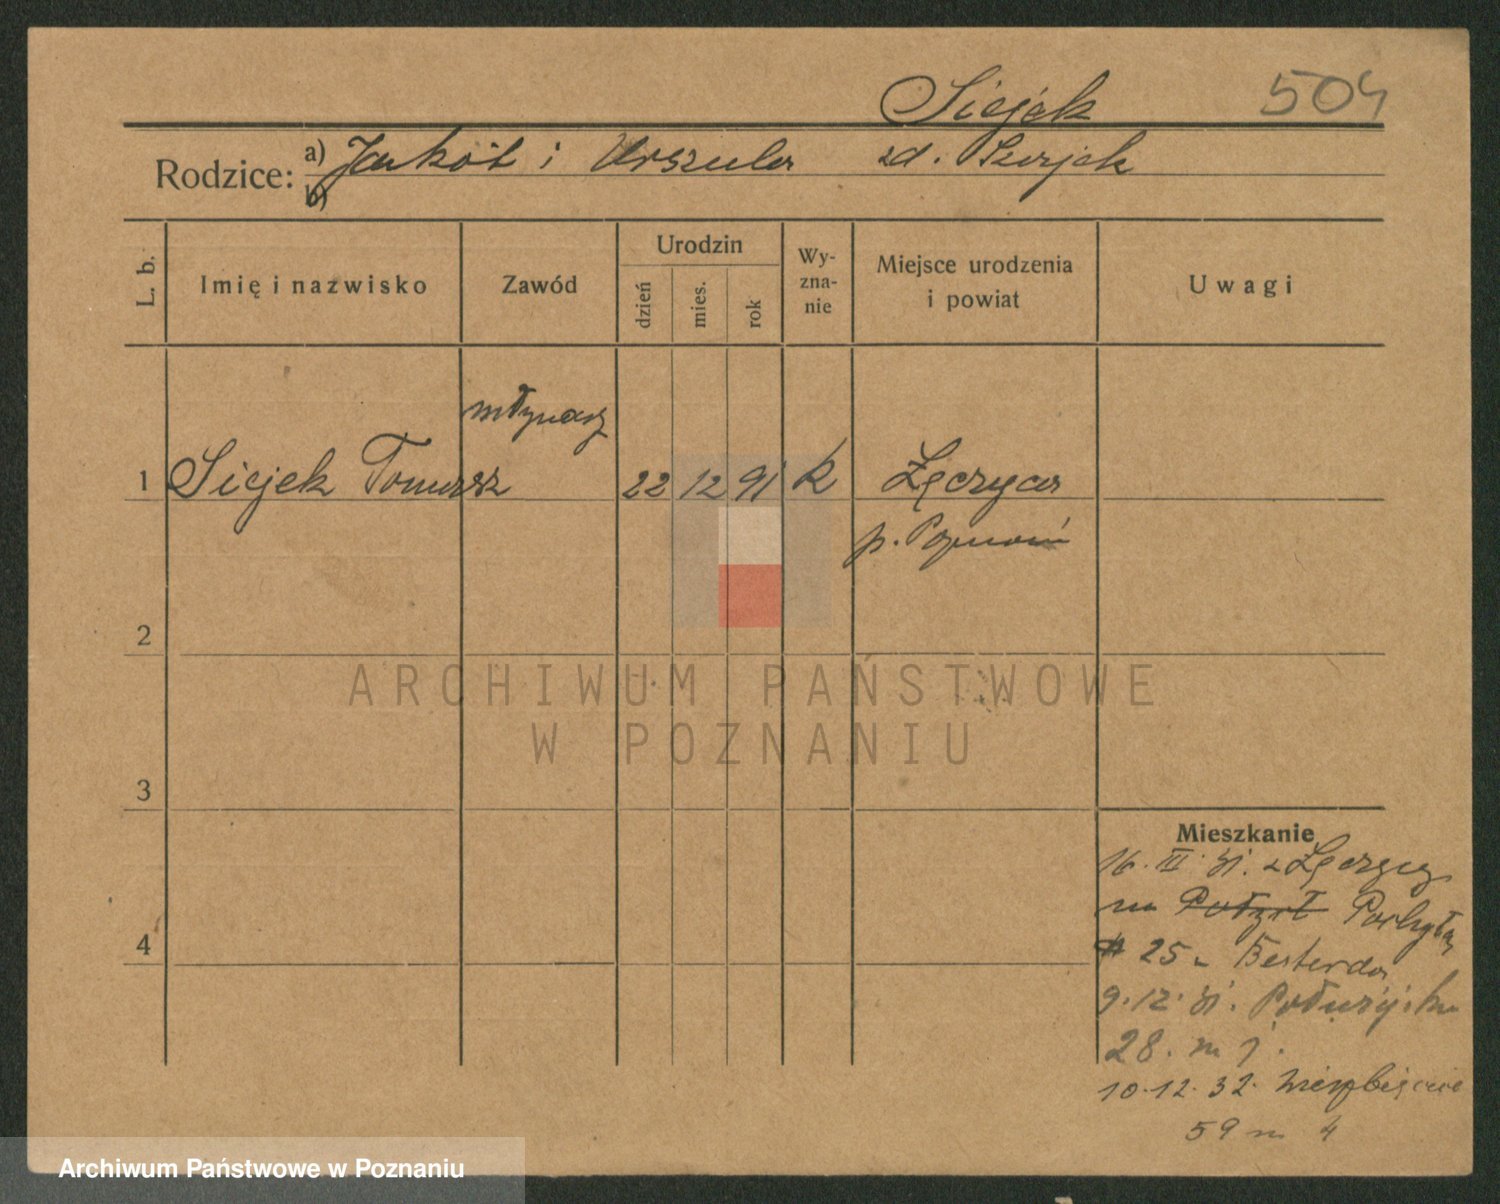 Siejek 504
Rodzice: a) Jakób i Urszula zd. Szajek
b)
L. b. Imię i nazwisko Zawód Urodzin dzień mies. rok Wyznanie Miejsce urodzenia i powiat Uwagi
młynarz
1 Siejek Tomasz 22 12 91 k Łęczyca
p. Poznań
2
ARCHIWUM PAŃSTWOWE
W POZNANIU
3
Mieszkanie
16. III. 31. z Łęczycy
na
4
25
9.12.31.
28. m 1.
10.12.32. Wierzbięcice
59 m 4
Archiwum Państwowe w Poznaniu